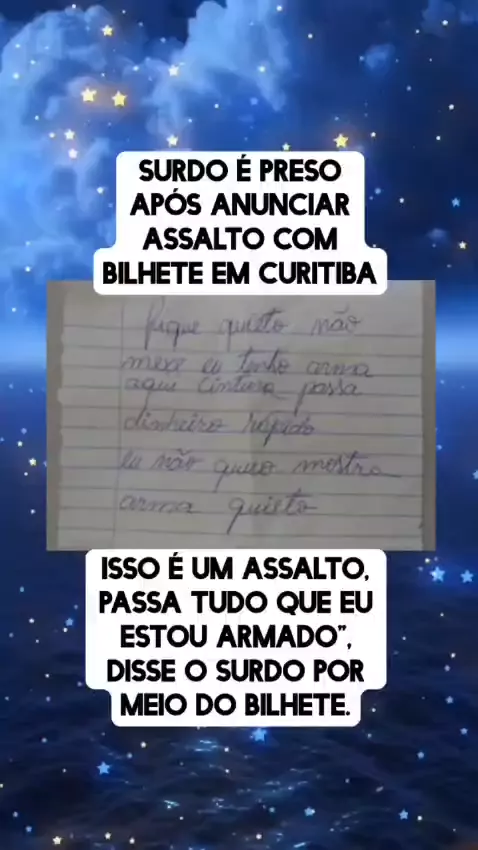 SURDO É PRESO
APÓS ANUNCIAR
ASSALTO COM
BILHETE EM CURITIBA
fique quieto não
mexe eu tenho arma
aqui cintura passa
dinheiro rápido
eu não quero mostra
arma quieto
ISSO É UM ASSALTO,
PASSA TUDO QUE EU
ESTOU ARMADO”,
DISSE O SURDO POR
MEIO DO BILHETE.